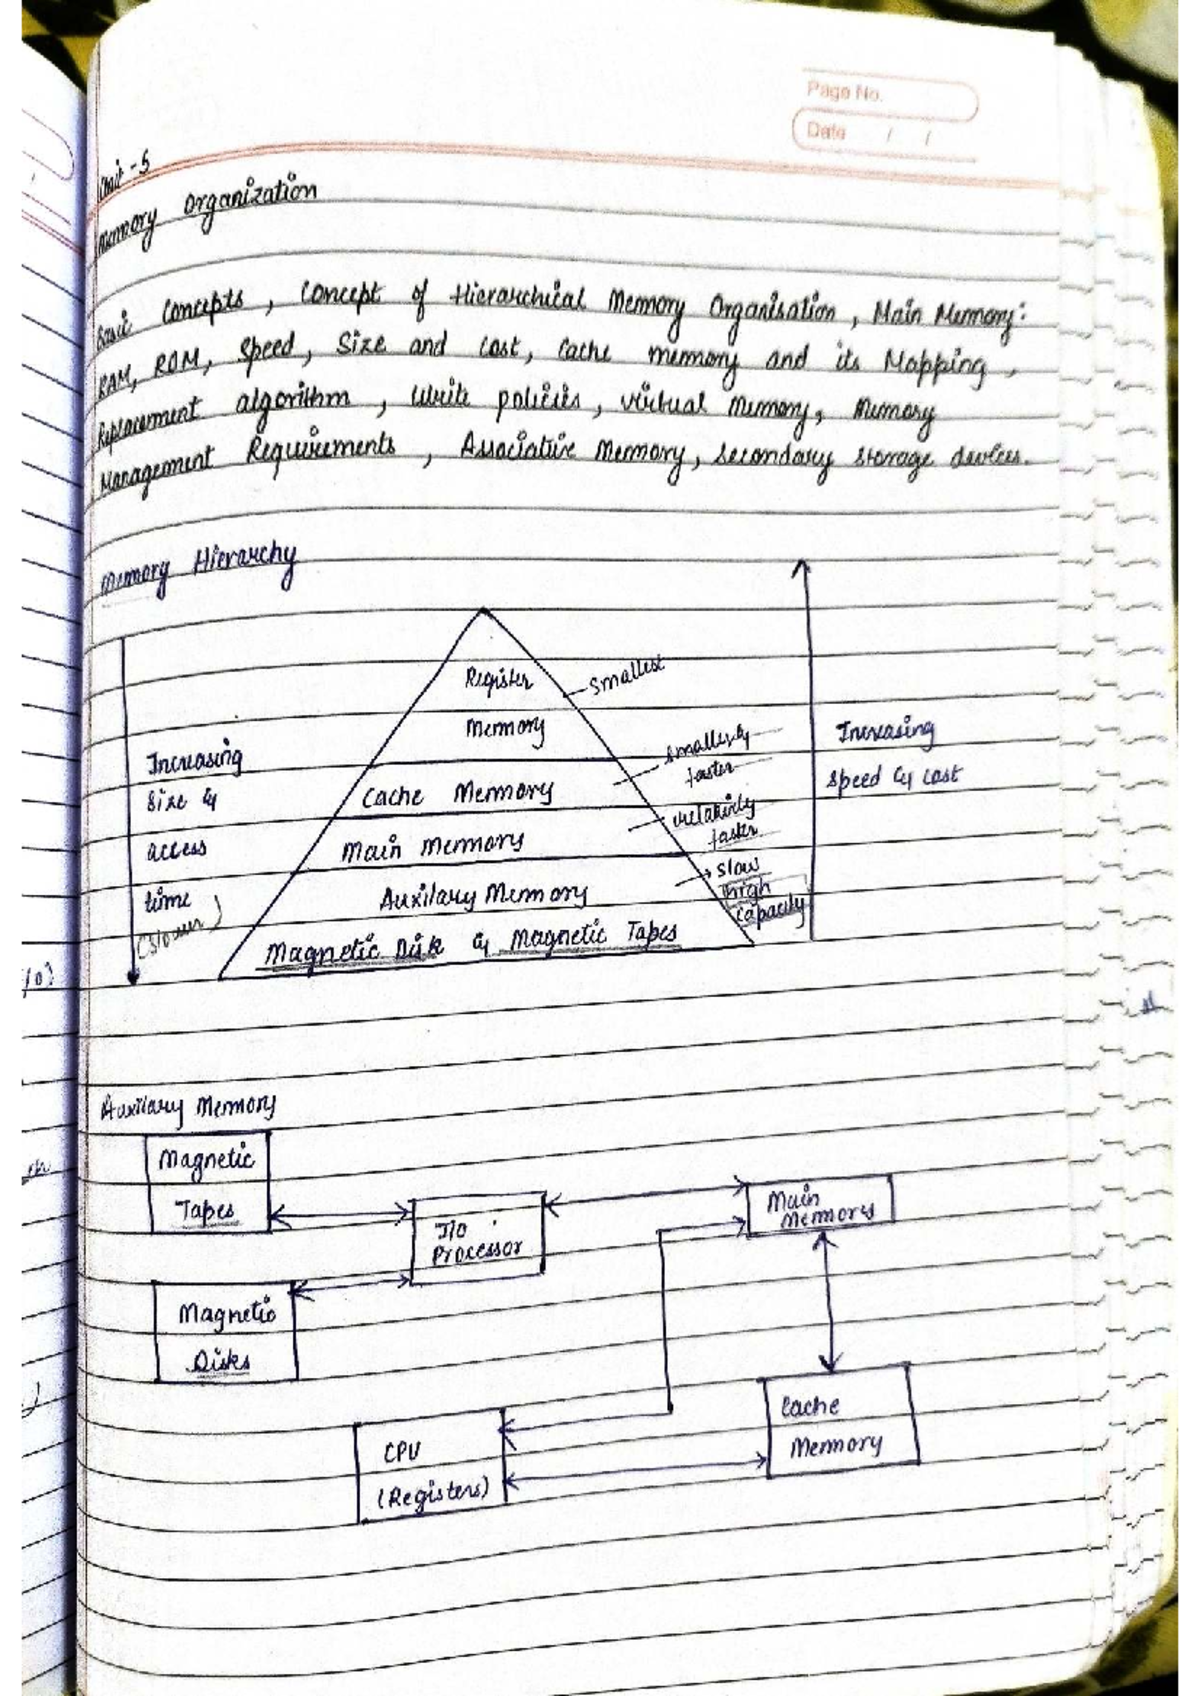 Page No.
Date / /
Unit - 5
Memory Organization
Basic Concepts, Concept of Hierarchical Memory Organisation, Main Memory:
RAM, ROM, Speed, Size and Cost, Cache memory and its Mapping,
Replacement algorithm, Write policies, virtual memory, Memory
Management Requirements, Associative Memory, Secondary storage devices.
Memory Hierarchy
Register
Memory
Smallest
Cache Memory
smaller &
faster
Main Memory
relatively
faster
Auxilary Memory
slow
high
capacity
Magnetic Disk & Magnetic Tapes
Increasing
Size &
access
time
(slower)
Increasing
Speed & Cost
Auxilary Memory
Magnetic
Tapes
I/O
Processor
Main
Memory
Magnetic
Disks
Cache
Memory
CPU
(Registers)